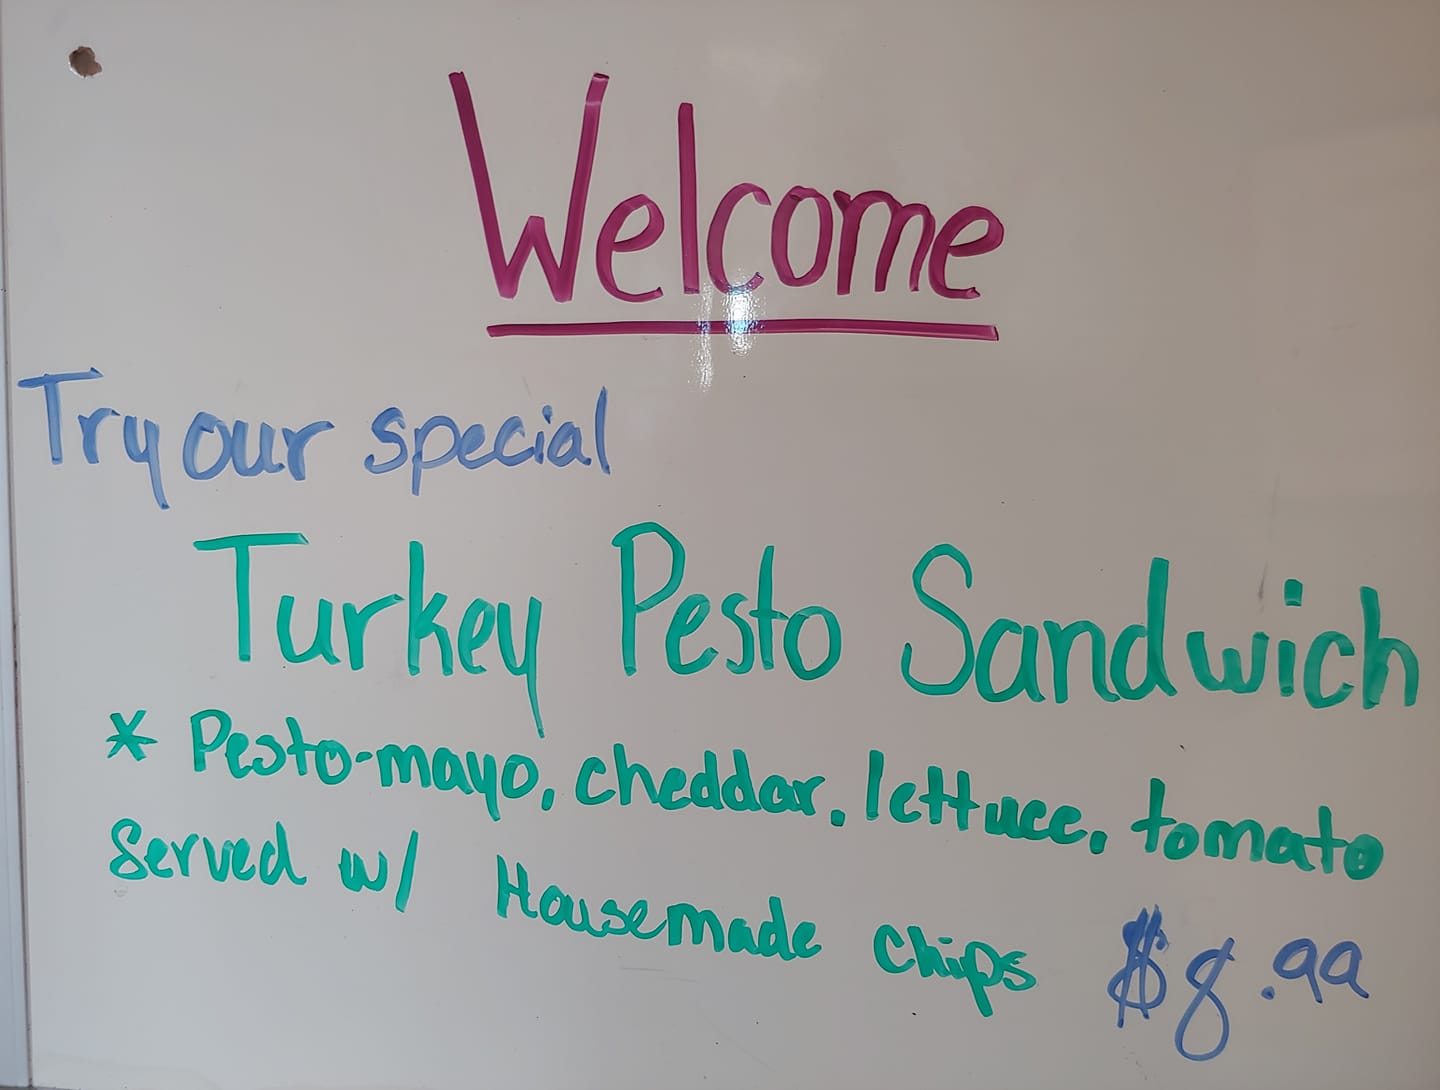 Welcome
Try our special
Turkey Pesto Sandwich
* Pesto-mayo, cheddar, lettuce, tomato
Served w/ Housemade chips $8.99